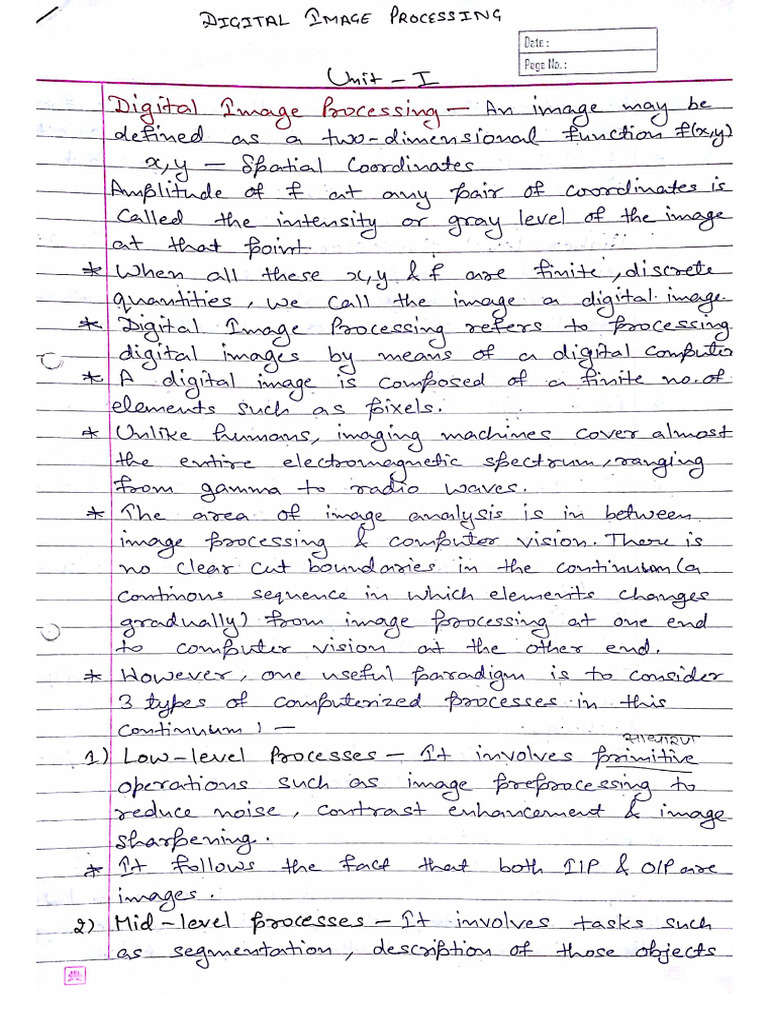 DIGITAL IMAGE PROCESSING
Date :
Page No. :
Unit - I
Digital Image Processing - An image may be
defined as a two-dimensional function f(x,y)
x,y - Spatial Coordinates
Amplitude of f at any pair of coordinates is
called the intensity or gray level of the image
at that point.
* When all these x,y & f are finite, discrete
quantities, we call the image a digital image.
* Digital Image Processing refers to processing
digital images by means of a digital computer
* A digital image is composed of a finite no. of
elements such as pixels.
* Unlike humans, imaging machines cover almost
the entire electromagnetic spectrum, ranging
from gamma to radio waves.
* The area of image analysis is in between
image processing & computer vision. There is
no clear cut boundaries in the continuum (a
continous sequence in which elements changes
gradually) from image processing at one end
to computer vision at the other end.
* However, one useful paradigm is to consider
3 types of computerized processes in this
continuum : -
साधारण
1) Low-level Processes - It involves primitive
operations such as image preprocessing to
reduce noise, contrast enhancement & image
sharpening.
* It follows the fact that both I/P & O/P are
images.
2) Mid-level processes - It involves tasks such
as segmentation, description of those objects